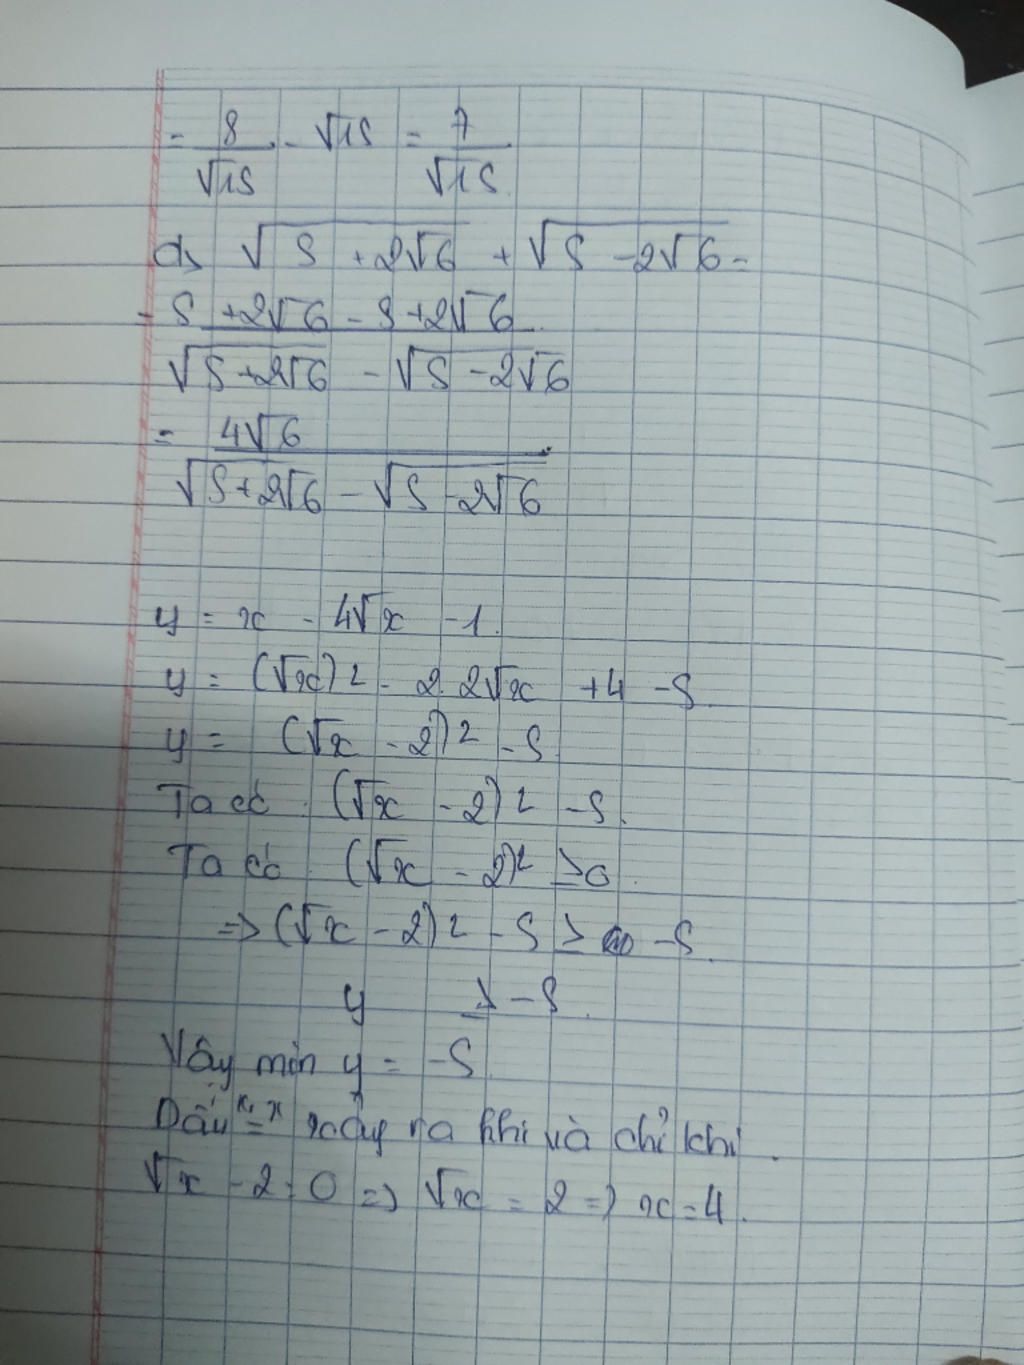 = 8/√15 - √15 = 7/√15
d, √(5 + 2√6) + √(5 - 2√6) =
= (5 + 2√6 - 5 + 2√6)/(√(5+2√6) - √(5-2√6))
= 4√6/(√(5+2√6) - √(5-2√6))
y = x - 4√x - 1
y = (√x)² - 2.2√x + 4 - 5
y = (√x - 2)² - 5
Ta có : (√x - 2)² - 5.
Ta có : (√x - 2)² ≥ 0
=> (√x - 2)² - 5 ≥ -5
y ≥ -5
Vậy min y = -5
Dấu "=" xảy ra khi và chỉ khi
√x - 2 = 0 => √x = 2 => x = 4.